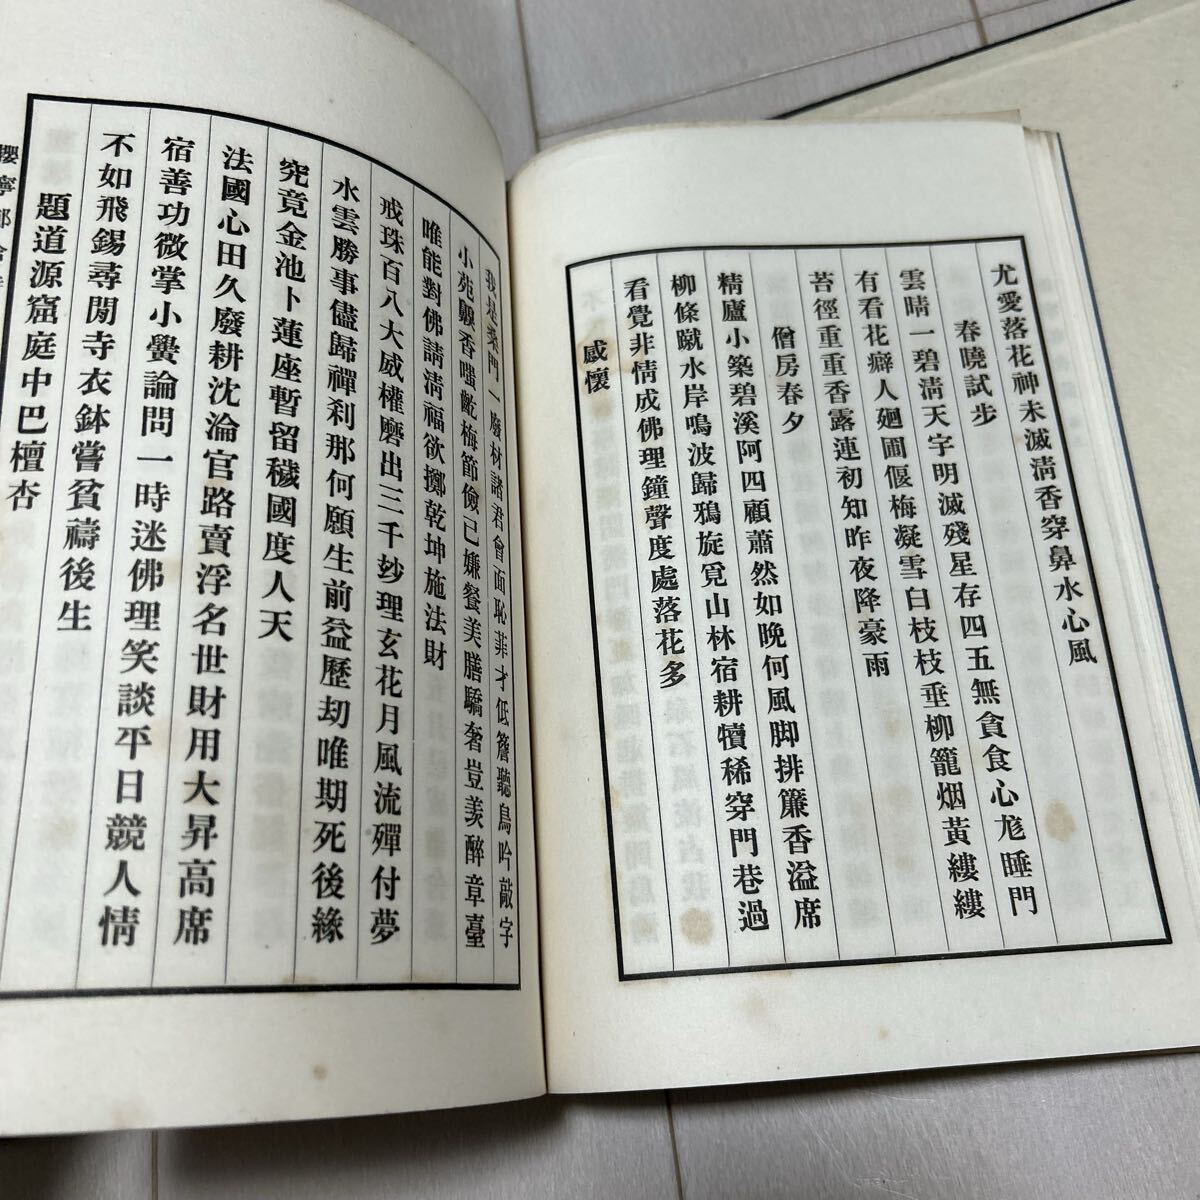 尤愛落花神未滅淸香穿鼻水心風
春曉試步
雲晴一碧淸天字明滅殘星存四五無貪食心尨睡門
有看花癖人廻圃偃梅凝雪白枝枝垂柳籠烟黃縷縷
苔徑重重香露連初知昨夜降豪雨
僧房春夕
精廬小築碧溪阿四顧蕭然如晚何風脚排簾香溢席
柳條蹴水岸鳴波歸鴉旋覓山林宿耕犢稀穿門巷過
看覺非情成佛理鐘聲度處落花多
感懷
我是桑門一廢材諸君會面恥菲才低簷聽鳥吟敲字
小苑齅香嗤齕梅節儉已嫌餐美膳驕奢豈羨醉章臺
唯能對佛請淸福欲擲乾坤施法財
戒珠百八大威權磨出三千玅理玄花月風流殫付夢
水雲勝事儘歸禪刹那何願生前益歷劫唯期死後緣
究竟金池卜蓮座暫留穢國度人天
法國心田久廢耕沈淪官路賣浮名世財用大昇高席
宿善功微掌小黌論問一時迷佛理笑談平日競人情
不如飛錫尋閒寺衣鉢嘗貧禱後生
題道源窟庭中巴檀杏
攖寧